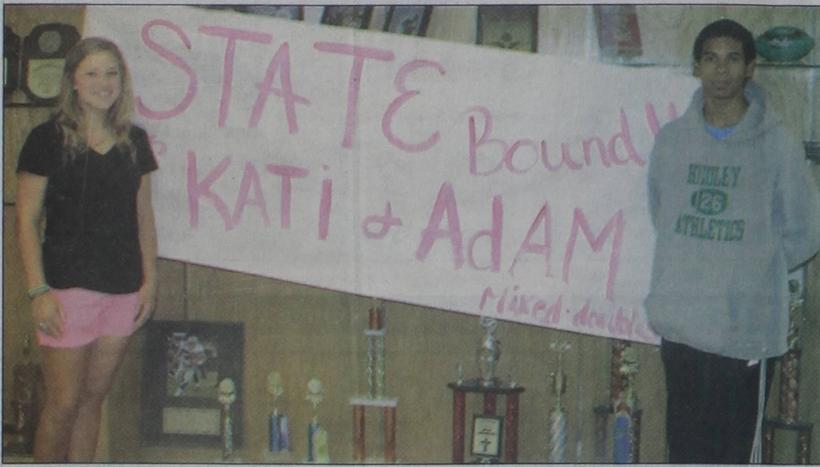 STATE
Bound!!
KATi & AdAM
Mixed-doubles
HIGLEY
126
ATHLETICS